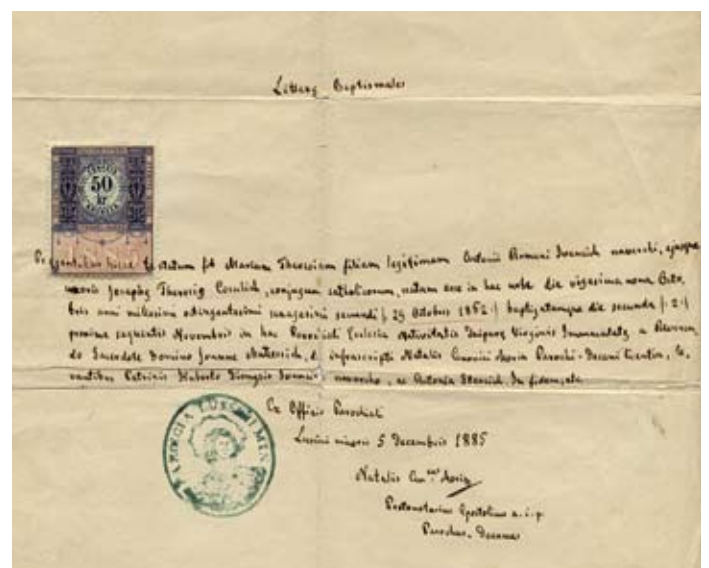 Litteræ Baptismales
50
kr
Præsentibus hisce testatum fit Mariam Theresiam filiam legitimam Antonii Romani Ivancich naucleri, ejusque
uxoris Josephæ Theresiæ Cosulich, conjugum catholicorum, natam esse in hac urbe die vigesima nona Octo
bris anni millesimi octingentesimi sexagesimi secundi /: 29 Octobris 1862 :/ baptizatamque die secunda /: 2 :/
proxime sequentis Novembris in hac Parochiali Ecclesia Nativitatis Deiparæ Virginis Immaculatæ a
Sacerdote Domino Joanne infrascripti Natalis Parochi-Decani licentia, le
vantibus Patrinis Huberto Dionysio nauclero, ac Antonia In fidem, etc.
Ex Officio Parochiali
Lussini 5 Decembris 1885
Natalis
Protonotarius Apostolicus a. i. p.
Parochus-Decanus